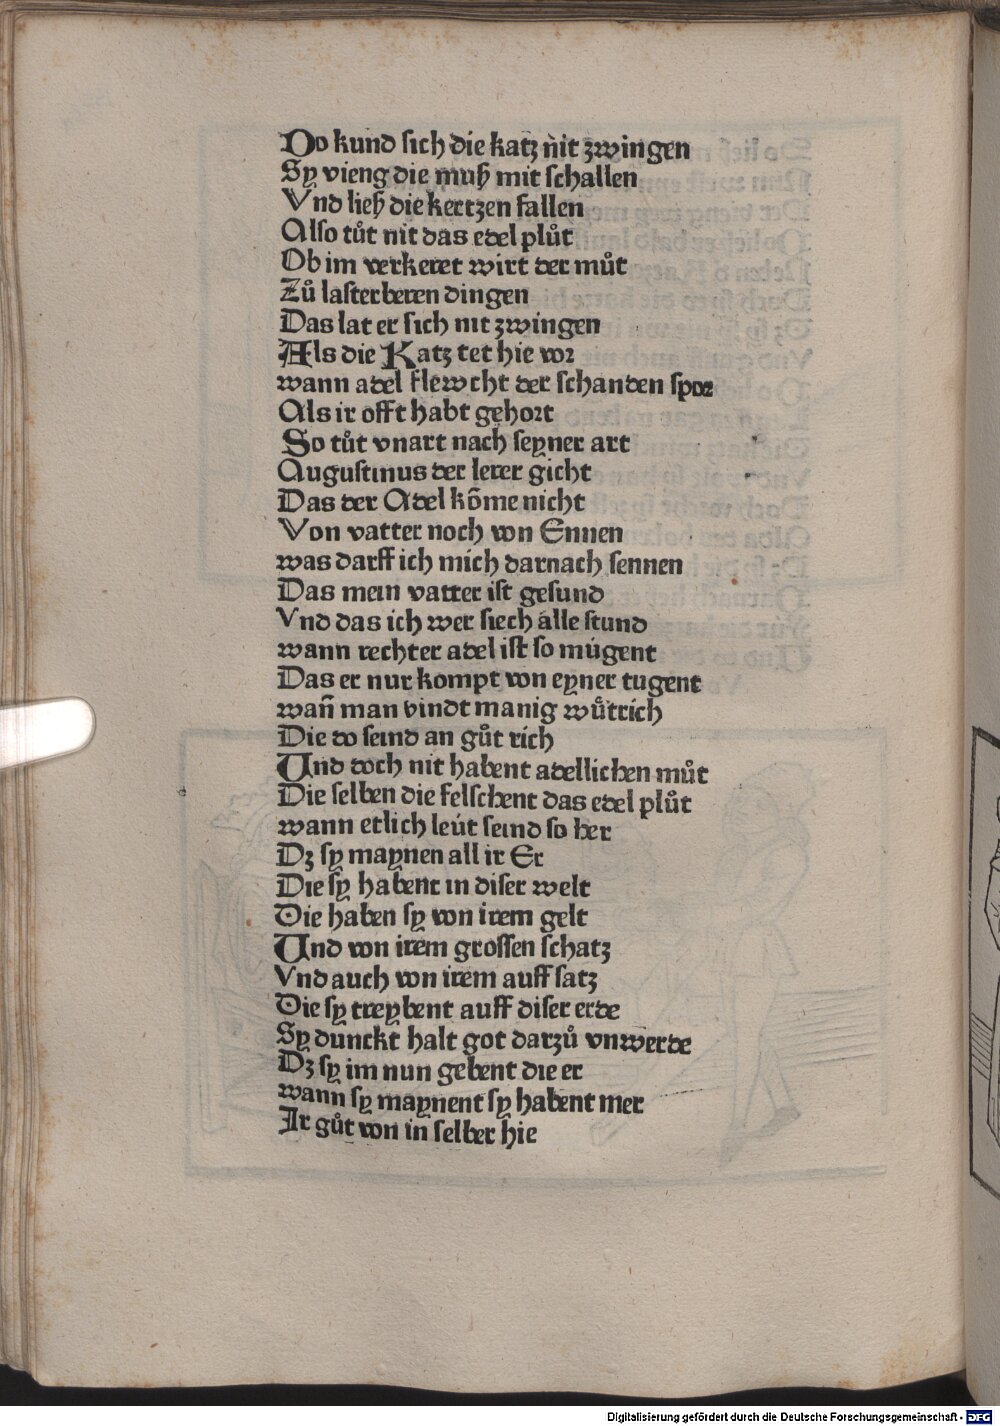 Do kund sich die katz nit zwingen
Sy vieng die muß mit schallen
Vnd ließ die kertzen fallen
Also tůt nit das edel plůt
Ob im verkeret wirt der můt
Zů lasterberen dingen
Das lat er sich nit zwingen
Als die Katz tet hie vor
wann adel flewcht der schanden spor
Als ir offt habt gehort
So tůt vnart nach seyner art
Augustinus der lerer gicht
Das der Adel kõme nicht
Von vatter noch von Ennen
was darff ich mich darnach sennen
Das mein vatter ist gesund
Vnd das ich wer siech alle stund
wann rechter adel ist so mugent
Das er nur kompt von eyner tugent
wan̄ man vindt manig wůtrich
Die do seind an gůt rich
Und doch nit habent adellichen můt
Die selben die felschent das edel plůt
wann etlich leut seind so her
Dz sy maynen all ir Er
Die sy habent in diser welt
Die haben sy von irem gelt
Und von irem grossen schatz
Vnd auch von irem auff satz
Die sy treybent auff diser erde
Sy dunckt halt got darzů vnwerde
Dz sy im nun gebent die er
wann sy maynent sy habent mer
Ir gůt von in selber hie
Digitalisierung gefördert durch die Deutsche Forschungsgemeinschaft - DFG